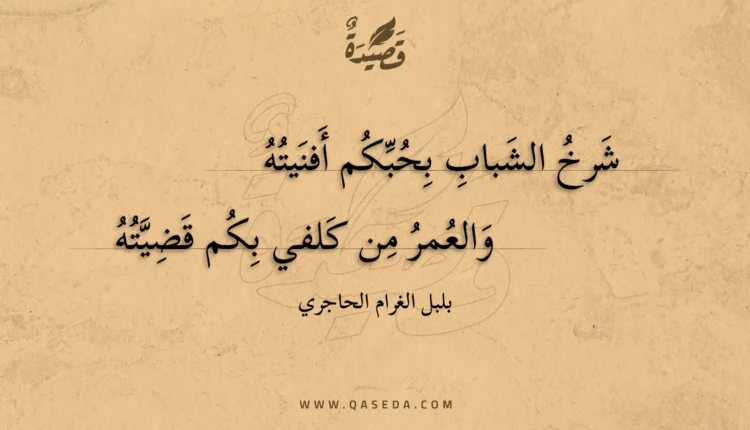 قَصِيْدَةٌ
شَرخُ الشَبابِ بِحُبِّكُم أَفنَيتُهُ
وَالعُمرُ مِن كَلفي بِكُم قَضِيَّتُهُ
بلبل الغرام الحاجري
WWW.QASEDA.COM